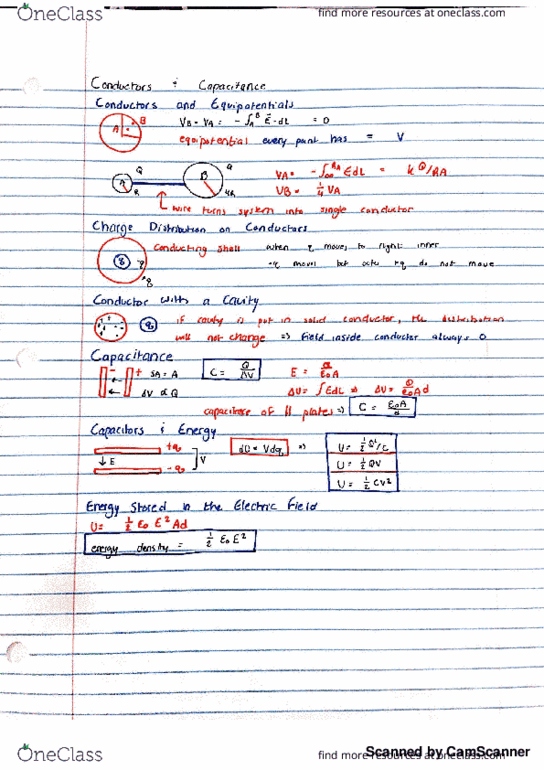 OneClass
find more resources at oneclass.com
Conductors & Capacitance
Conductors and Equipotentials
A B
VB - VA = -∫_A^B E⃗·dL = 0
equipotential every point has = V
A R Q B Q 4R
VA = -∫ EdL = k Q/RA
VB = 1/4 VA
wire turns system into single conductor
Charge Distribution on Conductors
conducting shell when q moves to right inner
-q moves but outer +q do not move
Conductor with a Cavity
if cavity is put in solid conductor, the distribution
will not change => field inside conductor always 0
Capacitance
- + SA = A
ΔV ∝ Q
C = Q/ΔV
E = Q/ε₀A
ΔV = ∫EdL => ΔV = Q/ε₀A d
capacitance of || plates => C = ε₀A/d
Capacitors & Energy
+q
↓E V
-q
dU = Vdq =>
U = 1/2 Q²/C
U = 1/2 QV
U = 1/2 CV²
Energy Stored in the Electric Field
U = 1/2 ε₀ E² Ad
energy density = 1/2 ε₀ E²
OneClass
find more resources at oneclass.com
Scanned by CamScanner